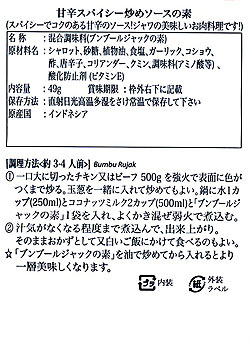 甘辛スパイシー炒めソースの素
(スパイシーでコクのある甘辛のソース!ジャワの美味しいお肉料理です!)
名称 : 混合調味料(ブンブールジャックの素)
原材料名 : シャロット、砂糖、植物油、食塩、ガーリック、コショウ、
酢、唐辛子、コリアンダー、クミン、調味料(アミノ酸等)、
酸化防止剤(ビタミンE)
内容量 : 49g 賞味期限 : 枠外右下に記載
保存方法 : 直射日光高温多湿をさけ常温で保存して下さい。
原産国 : インドネシア
【調理方法<約3-4人前>】 Bumbu Rujak
① 一口大に切ったチキン又はビーフ500gを強火で表面に色が
つくまで炒る。玉葱を一緒に入れて炒めてもよい。鍋に水1カ
ップ(250ml)とココナッツミルク2カップ(500ml)と「ブンブールジ
ャックの素」1袋を入れ、よくかき混ぜ弱火で煮込む。
② 汁気がなくなる程度まで煮込んで、出来上がり。
そのままおかずとして又白いご飯にかけて食べるのもよい。
☆「ブンブールジャックの素」を油で炒めてから入れるとより
一層美味しくなります。
プラ 内装
紙 外装 ラベル